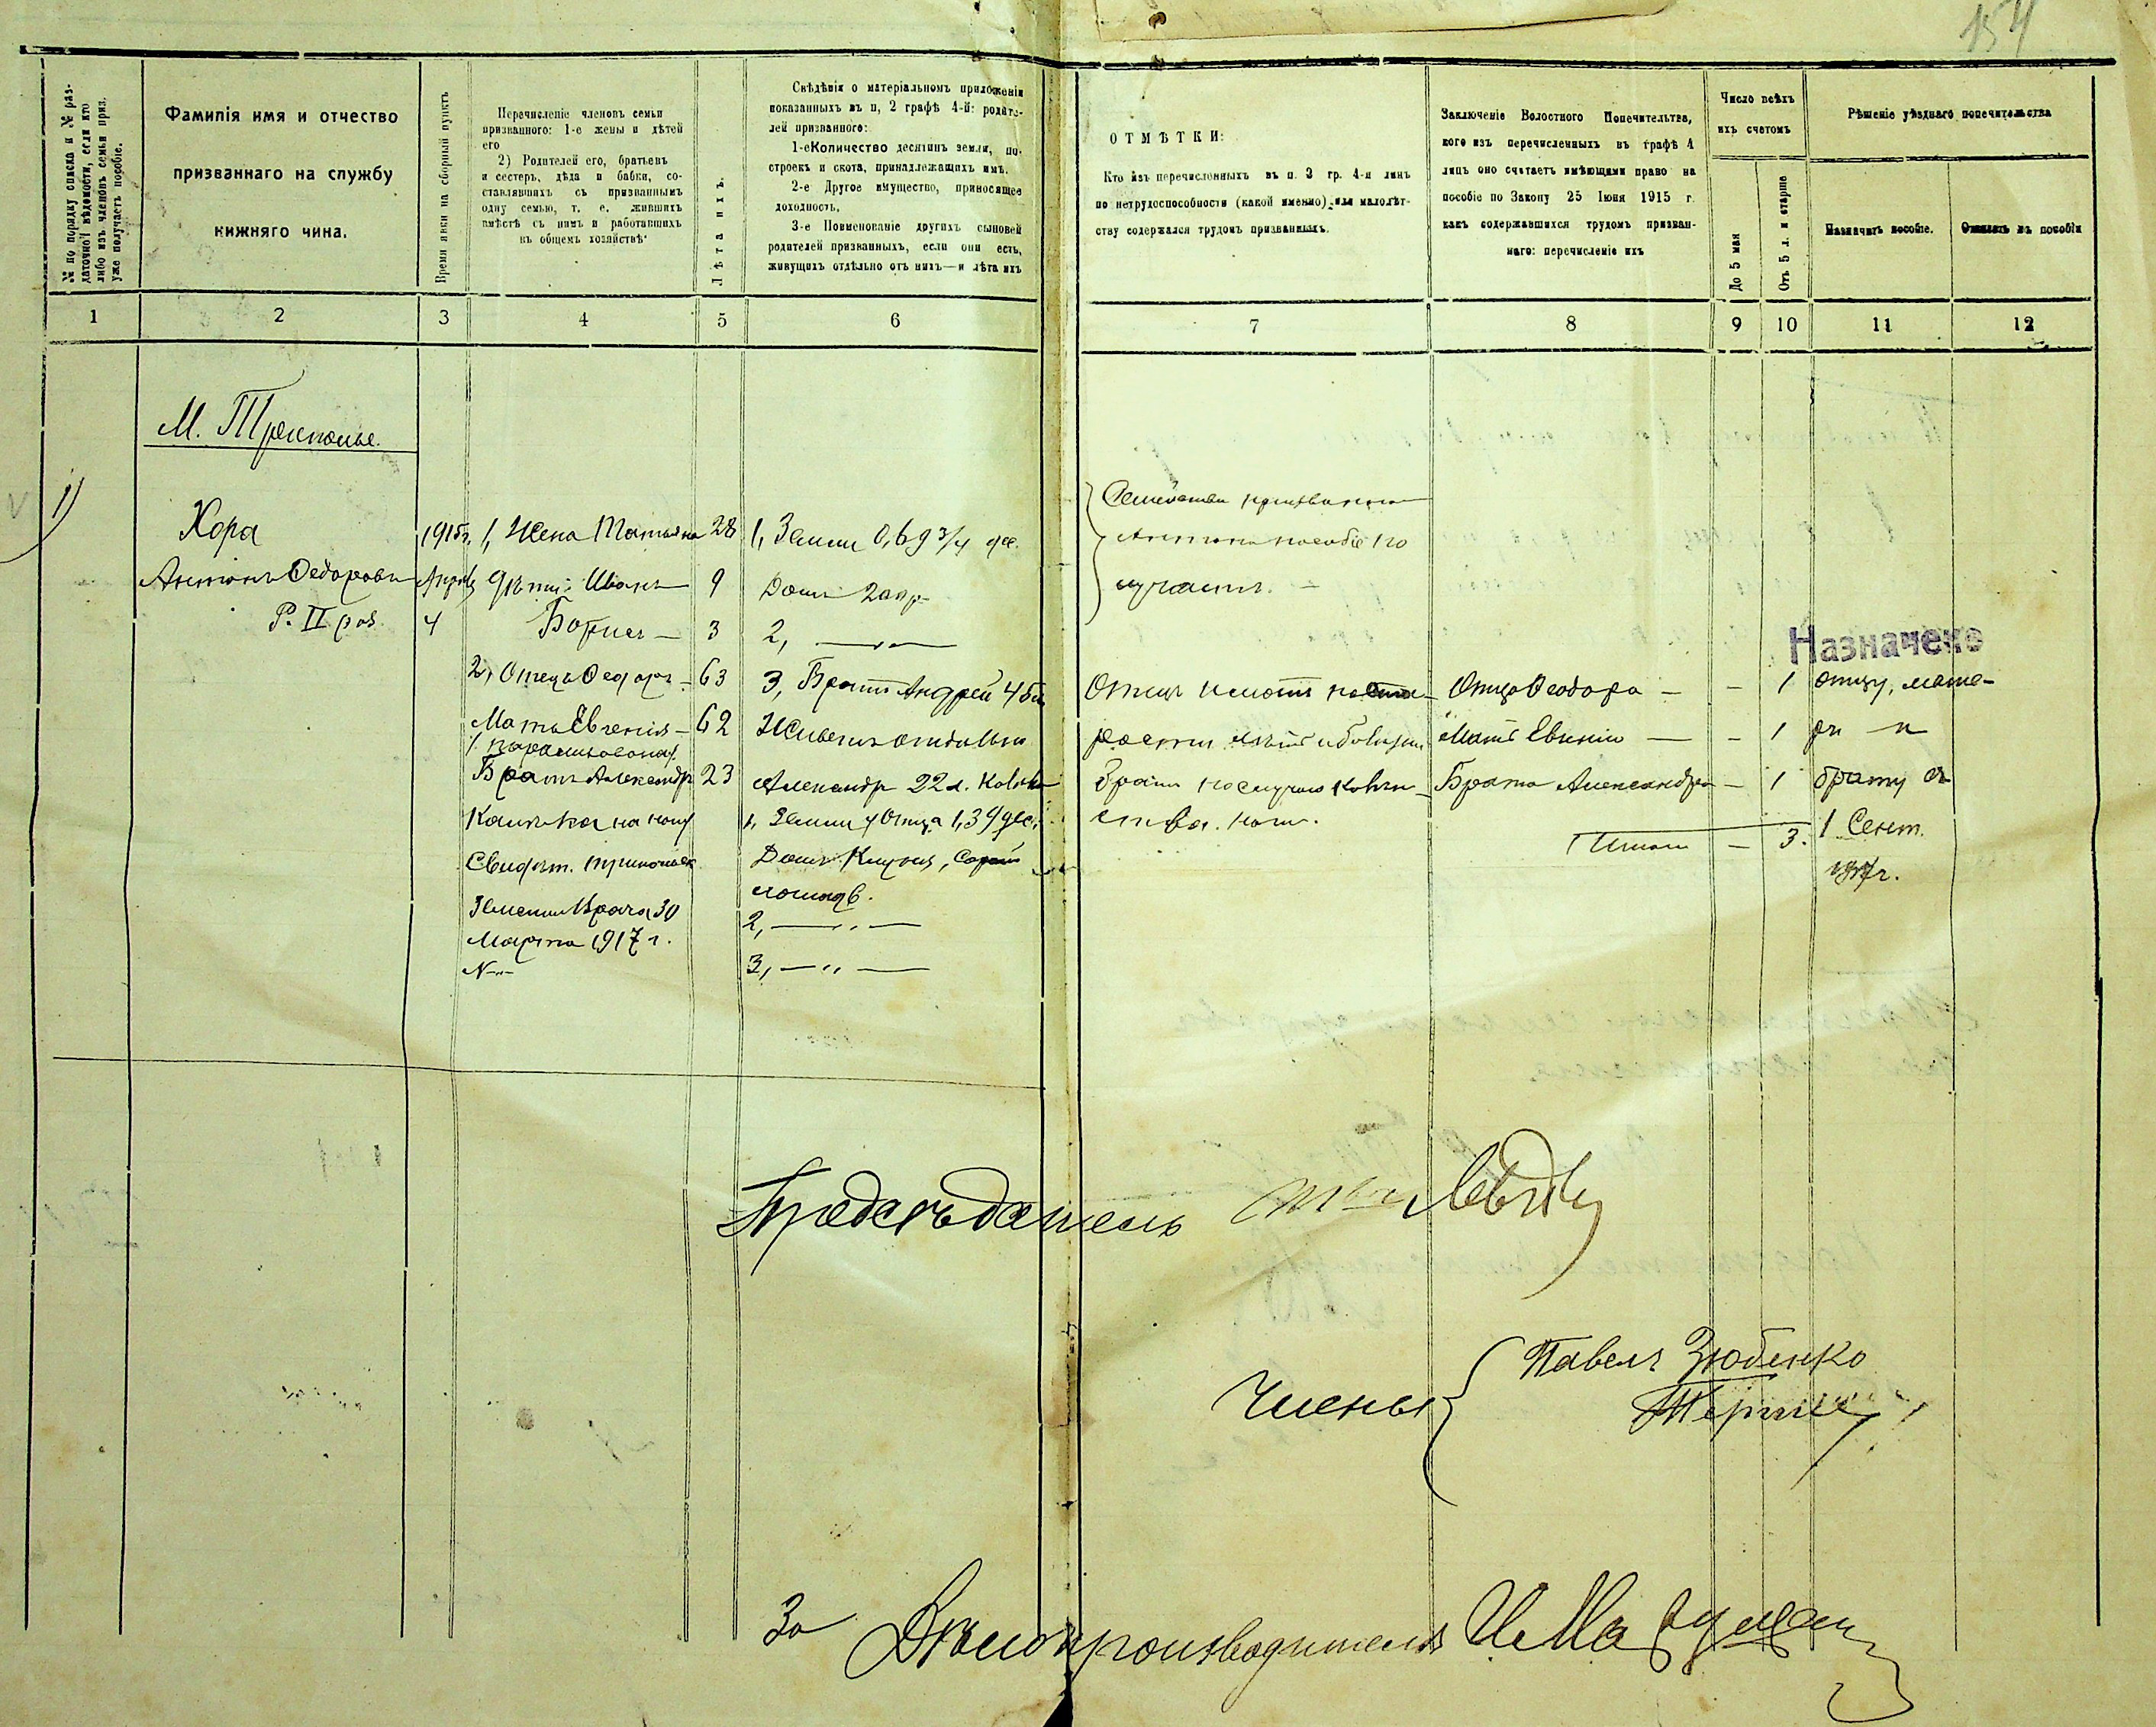 154
№ по порядку списка и № раз-
даточной вѣдомости, если кто
либо изъ членовъ семьи приз.
уже получаетъ пособіе.
Фамилія имя и отчество
призваннаго на службу
нижняго чина.
Время явки на сборный пунктъ
Перечисленіе членовъ семьи
призваннаго: 1-е жены и дѣтей
его
2) Родителей его, братьевъ
и сестеръ, дѣда и бабки, со-
ставлявшихъ съ призваннымъ
одну семью, т. е. жившихъ
вмѣстѣ съ нимъ и работавшихъ
въ общемъ хозяйствѣ
Лѣта ихъ.
Свѣдѣнія о матеріальномъ приложеніи
показанныхъ въ п, 2 графѣ 4-й: родите-
лей призваннаго:
1-е Количество десятинъ земли, по-
строекъ и скота, принадлежащихъ имъ.
2-е Другое имущество, приносящее
доходность.
3-е Поименованіе другихъ сыновей
родителей призванныхъ, если они есть,
живущихъ отдѣльно отъ нихъ—и лѣта ихъ
ОТМѢТКИ:
Кто изъ перечисленныхъ въ п. 2 гр. 4-й лицъ
по нетрудоспособности (какой именно) или малолѣт-
ству содержался трудомъ призванныхъ.
Заключеніе Волостного Попечительтва,
кого изъ перечисленныхъ въ графѣ 4
лицъ оно считаетъ имѣющими право на
пособіе по Закону 25 Іюня 1915 г.
какъ содержавшихся трудомъ призван-
наго: перечисленіе ихъ
Число всѣхъ
ихъ счетомъ
До 5 мая
Отъ 5 л. и старше
Рѣшеніе уѣзднаго попечительства
Назначить пособіе.
Отказать въ пособіи
1 2 3 4 5 6 7 8 9 10 11 12
М. Триполье.
1)
Хора
Антонъ Федоровъ
Р. II раз.
1915г.
4
1, Жена Татьяна 28
Дѣти: Иванъ 9
Борисъ 3
2, Отецъ Федоръ 63
Мать Евгенія 62
Братъ Александръ 23
Калѣка на ногу
Свидѣт.
Земскаго Врача 30
Марта 1917 г.
№
1, Земли 0,69 3/4 дес.
Домъ
2, —„—
3, Братъ Андрей
Живетъ отдѣльно
Александр 22 л.
1, Земли у Отца 1,39 дес.
Домъ Клуня, Сарай
2, —„—
3, —„—
Семейство призваннаго
Антона пособіе по
лучаетъ.
Отецъ
Отца Феодора — - 1
Мать Евгенію — - 1
Брата Александра — 1
Итого — 3.
Назначено
отцу, мате-
ри и
брату съ
1 Сент.
1917г.
Предсѣдатель
Члены
Павелъ Зюбенко
За Дѣлопроизводителя